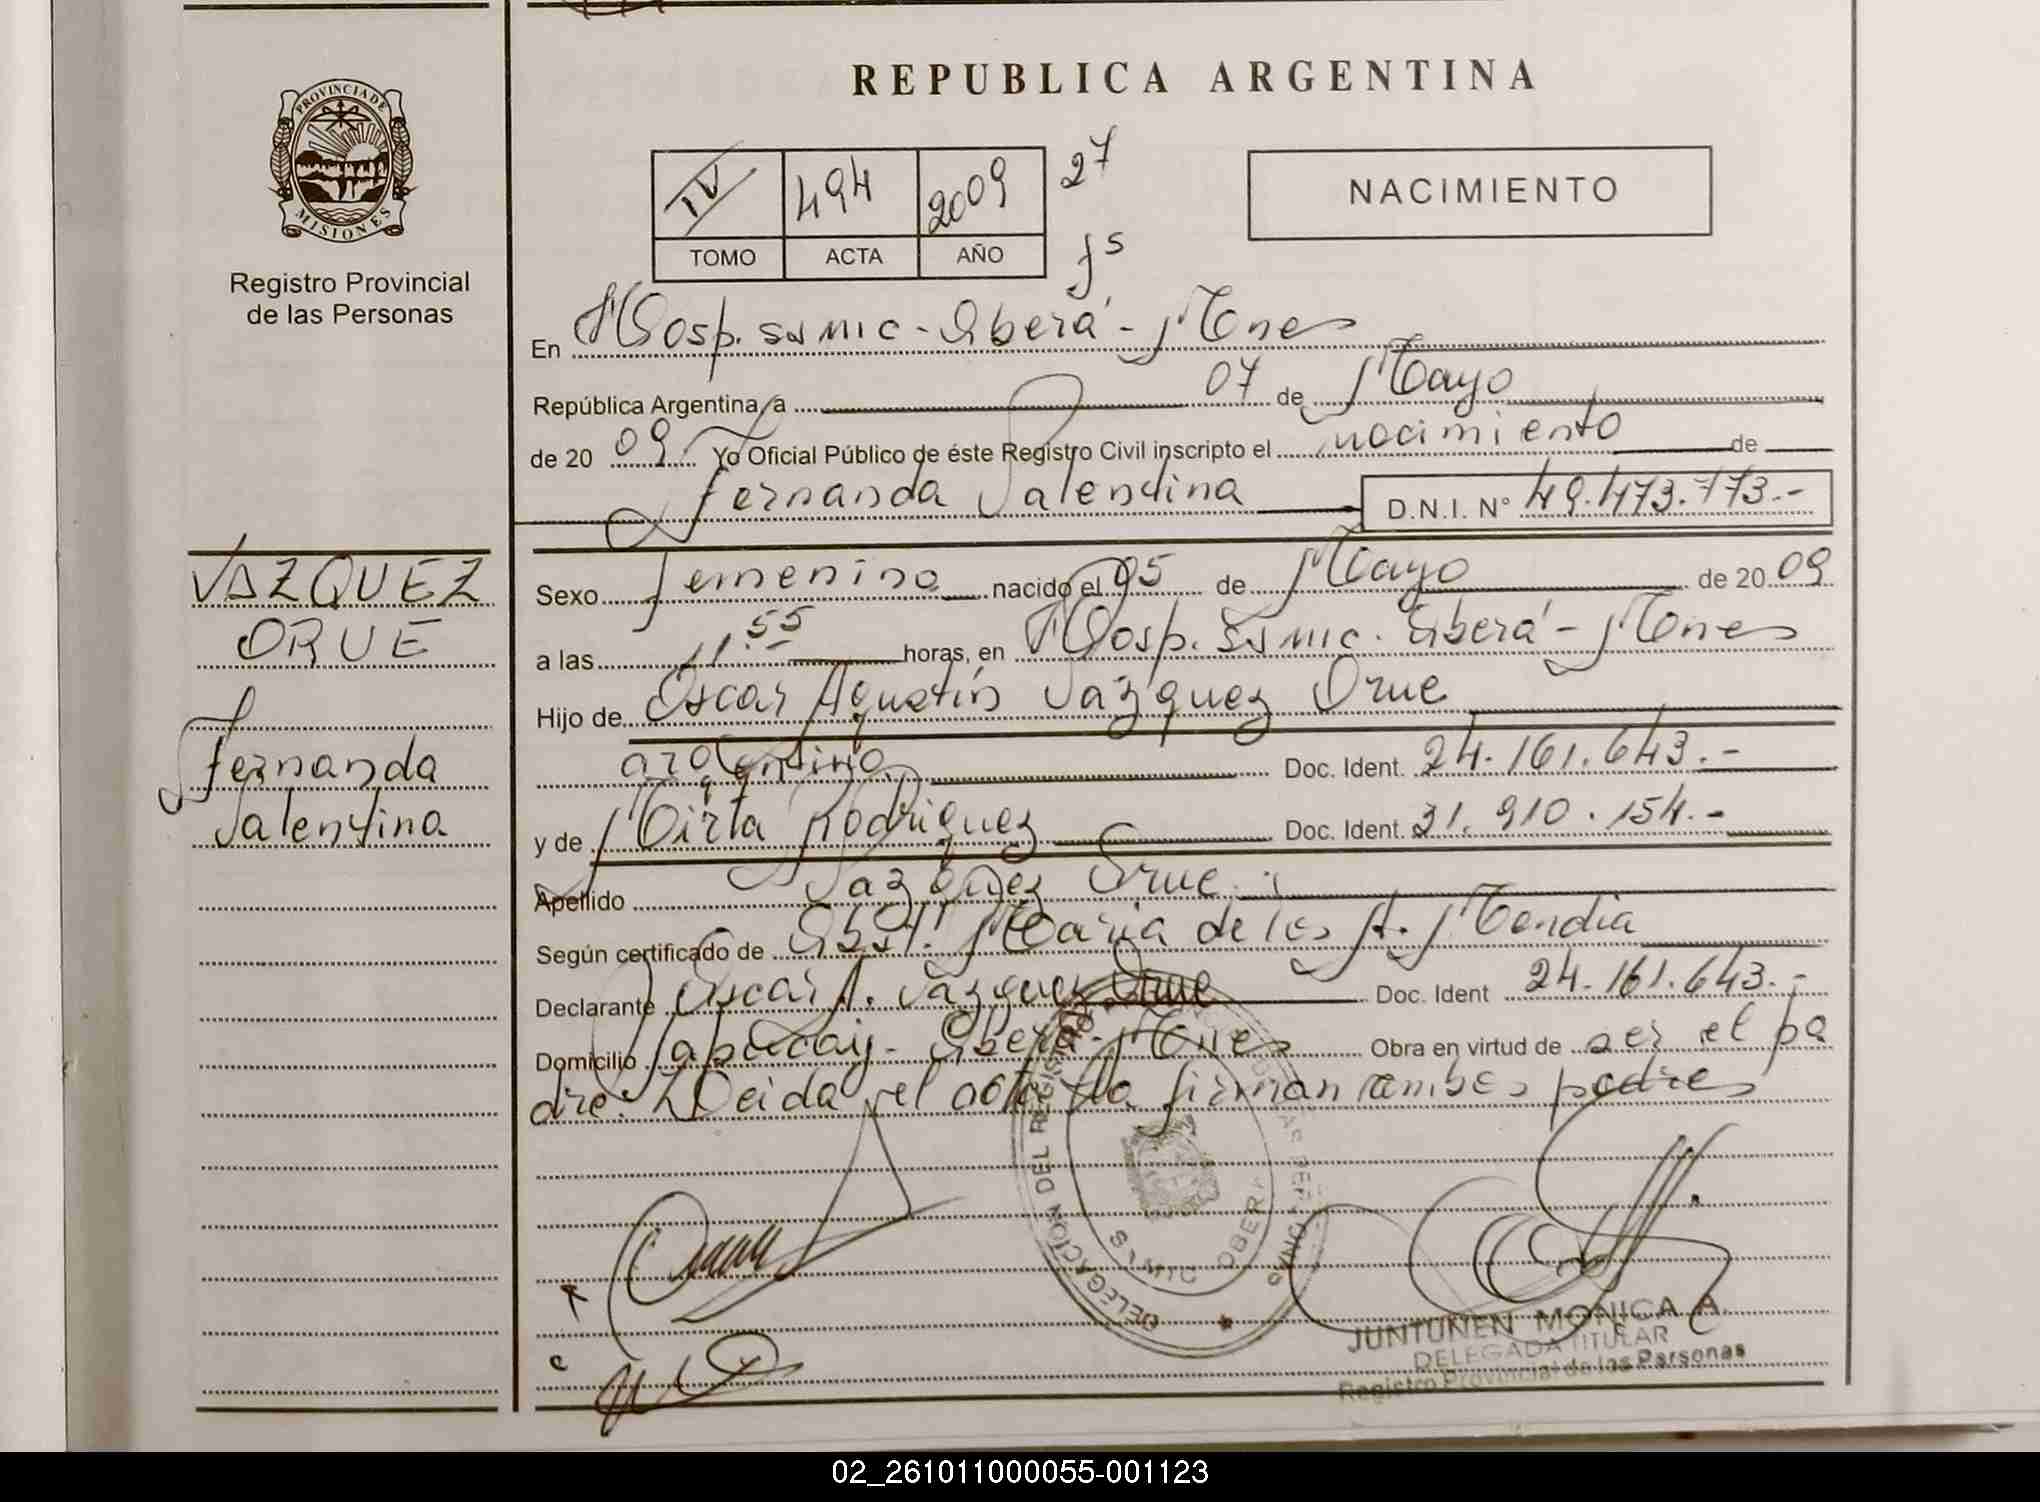 REPUBLICA ARGENTINA
PROVINCIA DE
MISIONES
Registro Provincial
de las Personas
IV 494 2009 27
TOMO ACTA AÑO
fs
NACIMIENTO
En Hosp. SAMIC - Oberá - Mnes
República Argentina, a 07 de Mayo
de 20 09 Yo Oficial Público de éste Registro Civil inscripto el nacimiento de
Fernanda Valentina D.N.I. N° 49.473.773.-
VAZQUEZ
ORUE
Fernanda
Valentina
Sexo femenino nacido el 05 de Mayo de 20 09
a las 11.55 horas, en Hosp. Samic. Oberá - Mnes
Hijo de Oscar Agustín Vazquez Orue
argentino Doc. Ident. 24.161.643.-
y de Mirta Rodriguez Doc. Ident. 31.910.154.-
Apellido Vazquez Orue
Según certificado de Obst. Maria de los A. Mendia
Declarante Oscar A. Vazquez Orue Doc. Ident 24.161.643.-
Domicilio Oberá - Mnes Obra en virtud de ser el pa
dre. Leida el acta la firman ambos padres
DELEGACION DEL REGISTRO
SAMIC OBERA
JUNTUNEN MONICA A.
DELEGADA TITULAR
Registro Provincial de las Personas
02_261011000055-001123